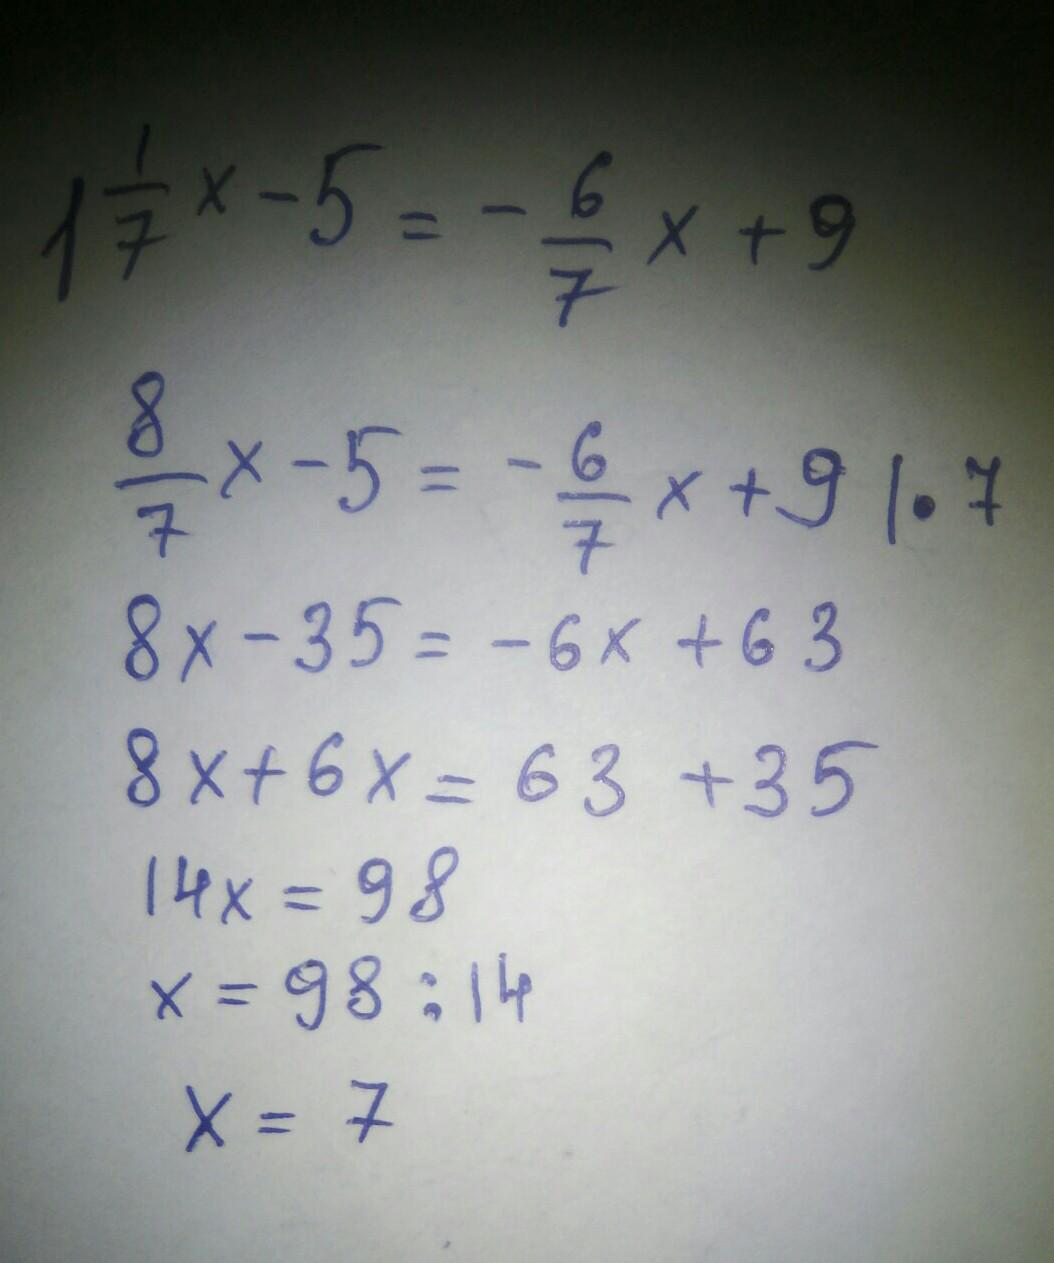 1 1/7 x - 5 = - 6/7 x + 9
8/7 x - 5 = - 6/7 x + 9 | • 7
8x - 35 = - 6x + 63
8x + 6x = 63 + 35
14x = 98
x = 98 : 14
x = 7